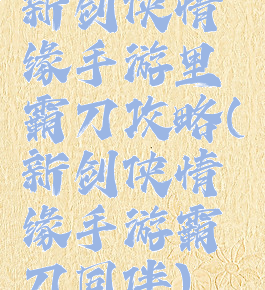 新剑侠情
缘手游里
霸刀攻略(
新剑侠情
缘手游霸
刀同伴)